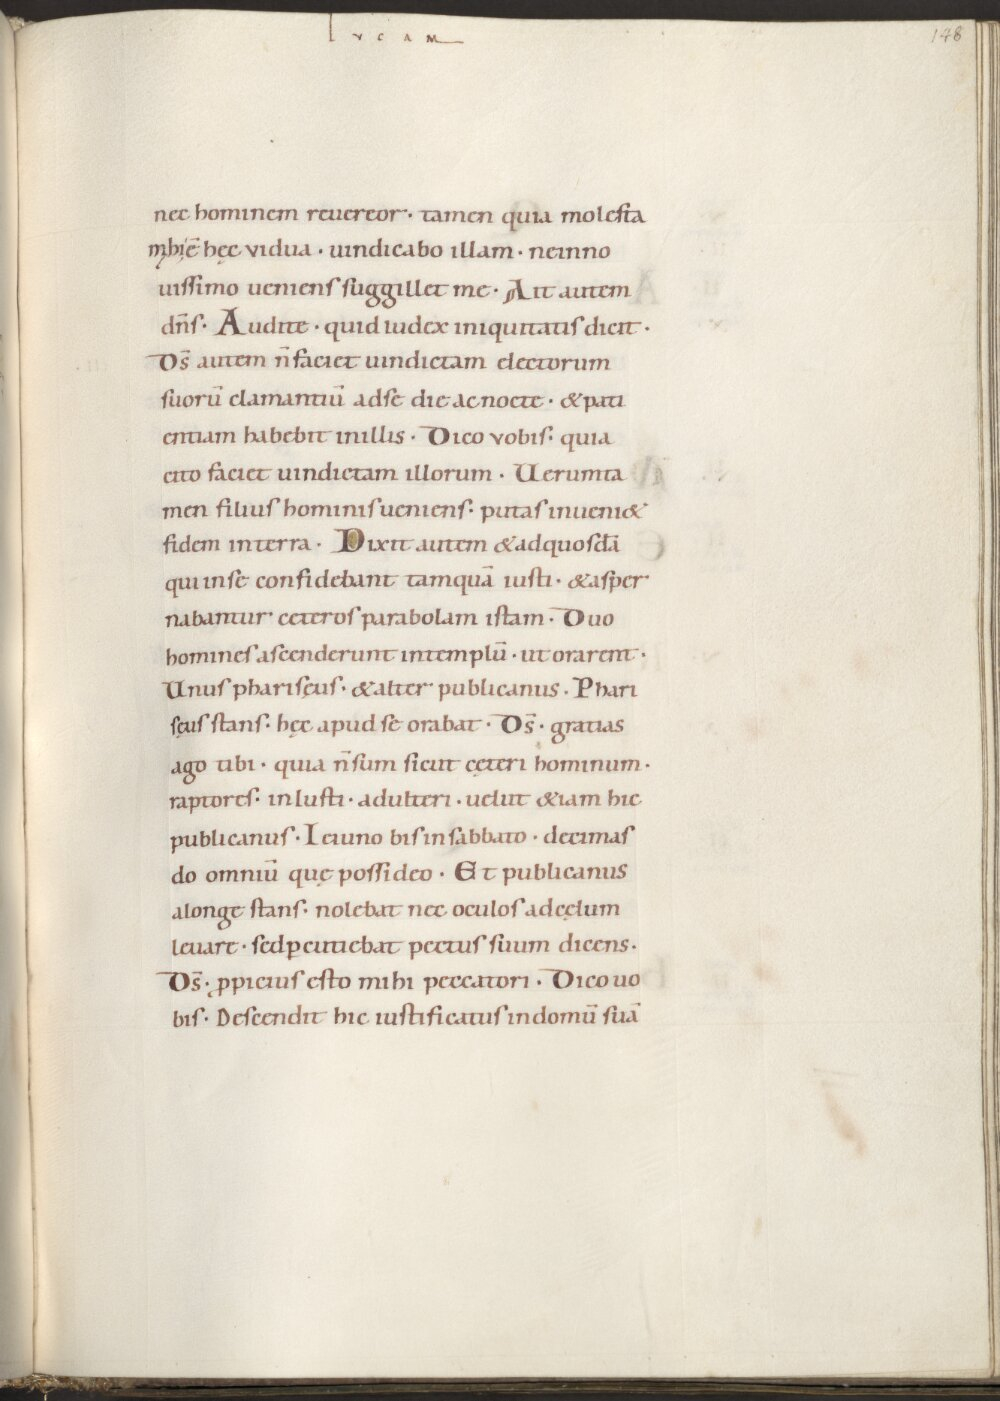 LVCAM
148
nec hominem reuereor· tamen quia molesta
m̅hi ÷ hęc vidua · uindicabo illam· neinno
uissimo ueniens suggillet me· Ait autem
dn̄s· Audite· quid iudex iniquitatis dicit·
Ds̄ autem n̄ faciet uindictam electorum
suorū clamantiū adse die ac nocte· &pati
entiam habebit inillis· Dico vobis· quia
cito faciet uindictam illorum· Uerumta
men filius hominis ueniens· putas inueni&
fidem interra· Dixit autem &adquosdā
qui inse confidebant tamquā iusti· &asper
nabantur ceteros parabolam istam· Duo
homines ascenderunt intemplū· ut orarent·
Unus phariseus· &alter publicanus· Phari
sęus stans· hęc apud se orabat· Ds̄· gratias
ago tibi· quia n̄ sum sicut cęteri hominum·
raptores· iniusti· adulteri· uelut &iam hic
publicanus· Ieiuno bis in sabbato· decimas
do omniū quę possideo· Et publicanus
alonge stans· nolebat nec oculos adcęlum
leuare· sed ꝑcutiebat pectus suum dicens·
Ds̄· ꝓpicius esto mihi peccatori· Dico uo
bis· Descendit hic iustificatus indomū suā